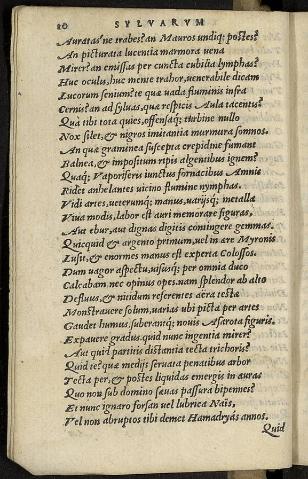 20 SYLVARVM
Auratas'ne trabes? an Mauros undiq; postes?
An picturata lucentia marmora uena
Mirer? an emissas per cuncta cubilia lymphas?
Huc oculis, huc mente trahor, uenerabile dicam
Lucorum senium? te quæ uada fluminis infra
Cernis? an ad syluas, quæ respicis Aula tacentis?
Quà tibi tota quies, offensaq; turbine nullo
Nox silet, & nigros imitantia murmura somnos.
An quæ graminea suscepta crepidine fumant
Balnea, & impositum ripis algentibus ignem?
Quaq; Vaporiferis iunctus fornacibus Amnis
Ridet anhelantes uicino flumine nymphas.
Vidi artes, ueterumq; manus, uarijsq; metalla
Viua modis, labor est auri memorare figuras,
Aut ebur, aut dignas digitis contingere gemmas.
Quicquid & argento primum, uel in ære Myronis
Lusit, & enormes manus est experta Colossos.
Dum uagor aspectu, uisusq; per omnia duco
Calcabam, nec opinus opes, nam splendor ab alto
Defluus, & nitidum referentes aëra testa
Monstrauere solum, uarias ubi picta per artes
Gaudet humus, suberantq; nouis Asarota figuris.
Expauere gradus. quid nunc ingentia mirer?
Aut quid partitis distantia tecta trichoris?
Quid te? quæ medijs seruata penatibus arbor
Tecta per, & postes liquidas emergis in auras
Quo non sub domino sæuas passura bipennes?
Et nunc ignaro forsan uel lubrica Naïs,
Vel non abruptos tibi demet Hamadryás annos.
Quid